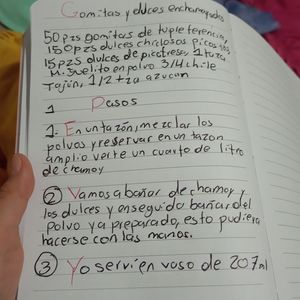 Gomitas y dulces enchamoyados
50 pzs gomitas de tu preferencia,
150 pzs dulces chiclosos picositos
15 pzs dulces de picafresa, 1 taza
M. Suelito en polvo 3/4 chile
Tajín, 1/2 tza azucar
1 Pasos
1. En un tazón, mezclar los
polvos y reservar en un tazon
amplio verte un cuarto de litro
de chamoy
2 Vamos a bañar de chamoy
los dulces y enseguida bañar del
polvo ya preparado, esto pudiera
hacerse con las manos.
3 Yo serví en vaso de 207 ml